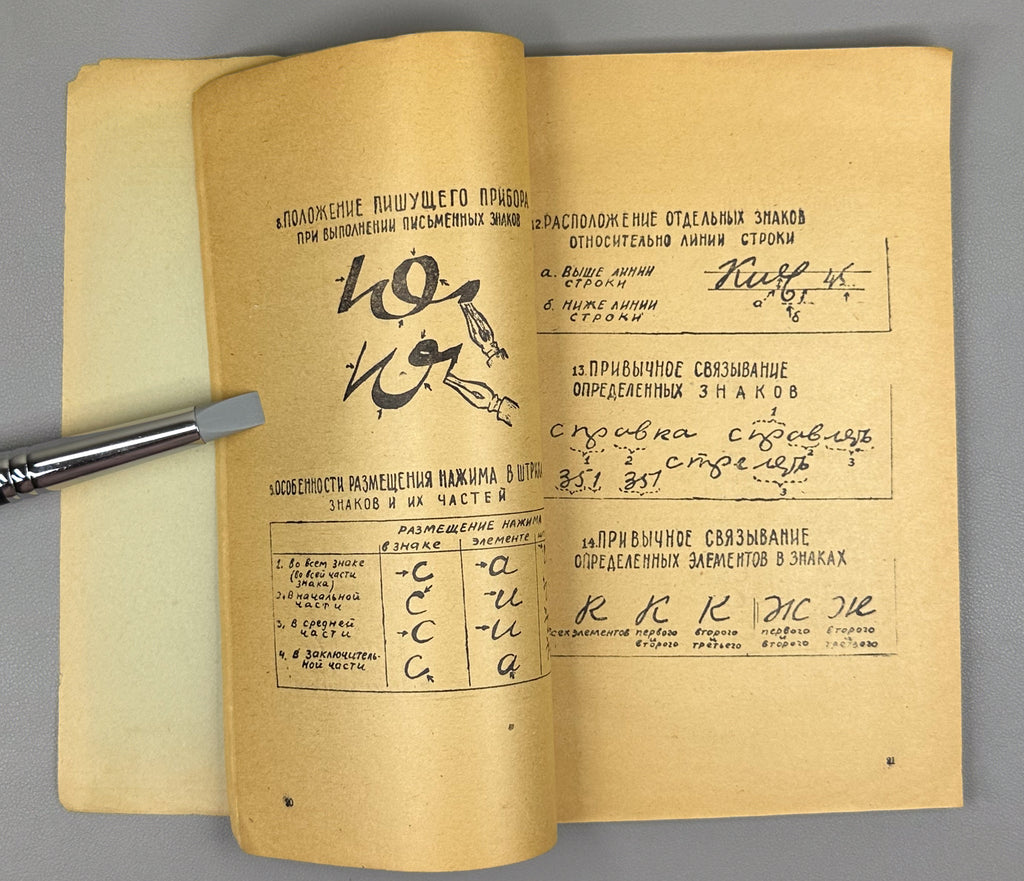 8. ПОЛОЖЕНИЕ ПИШУЩЕГО ПРИБОРА
ПРИ ВЫПОЛНЕНИИ ПИСЬМЕННЫХ ЗНАКОВ
Ю
Ю
ОСОБЕННОСТИ РАЗМЕЩЕНИЯ НАЖИМА В
ЗНАКОВ И ИХ ЧАСТЕЙ
РАЗМЕЩЕНИЕ НАЖИМА
в знаке элементе
1. Во всем знаке
(во всей части
знака)
с а
2. В начальной
части
с и
3. В средней
части
с и
4. В заключитель-
ной части
с а
20
12. РАСПОЛОЖЕНИЕ ОТДЕЛЬНЫХ ЗНАКОВ
ОТНОСИТЕЛЬНО ЛИНИИ СТРОКИ
а. ВЫШЕ ЛИНИИ
СТРОКИ
б. НИЖЕ ЛИНИИ
СТРОКИ
45
а
б
13. ПРИВЫЧНОЕ СВЯЗЫВАНИЕ
ОПРЕДЕЛЕННЫХ ЗНАКОВ
1
справка справлять
1 2 2 3
351 351 стрелять
3
14. ПРИВЫЧНОЕ СВЯЗЫВАНИЕ
ОПРЕДЕЛЕННЫХ ЭЛЕМЕНТОВ В ЗНАКАХ
К К К Ж Ж
элементов первого второго первого второго
и и и и
второго третьего второго третьего
21